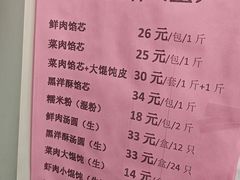 鲜肉馅芯 26 元/包/1 斤
菜肉馅芯 25 元/包/1 斤
菜肉馅芯+大馄饨皮 30 元/套/1 斤+1 斤
黑洋酥馅芯 34 元/包/1 斤
糯米粉（混粉） 18 元/包/2 斤
鲜肉汤圆（生） 33 元/盒/12 只
黑洋酥汤圆（生） 33 元/盒/24 只
菜肉大馄饨（生） 14 元/
虾肉小馄饨（生）